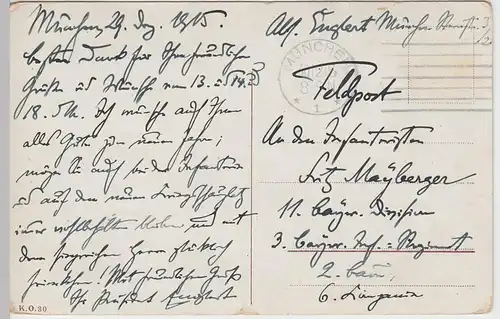 München, 29. Dez. 1915.
besten Dank für Ihre freundlichen
Grüße und Wünsche vom 13. und
18. d. M. Ich wünsche auch Ihnen
alles Gute zum neuen Jahre;
möge es auch bei der Infanterie
und auf dem neuen Kriegsschauplatz
immer wohlbehalten bleiben und mit
dem siegreichen Heere glücklich
heimkehren! Mit freundlichem Gruß
Ihr Präsident Englert
K.O.30
Abs. Englert München
MÜNCHEN
Feldpost
An den Infanteristen
Fritz Mayberger
11. bayer. Division
3. bayer. Inf.-Regiment
2. Batl.
6. Kompanie